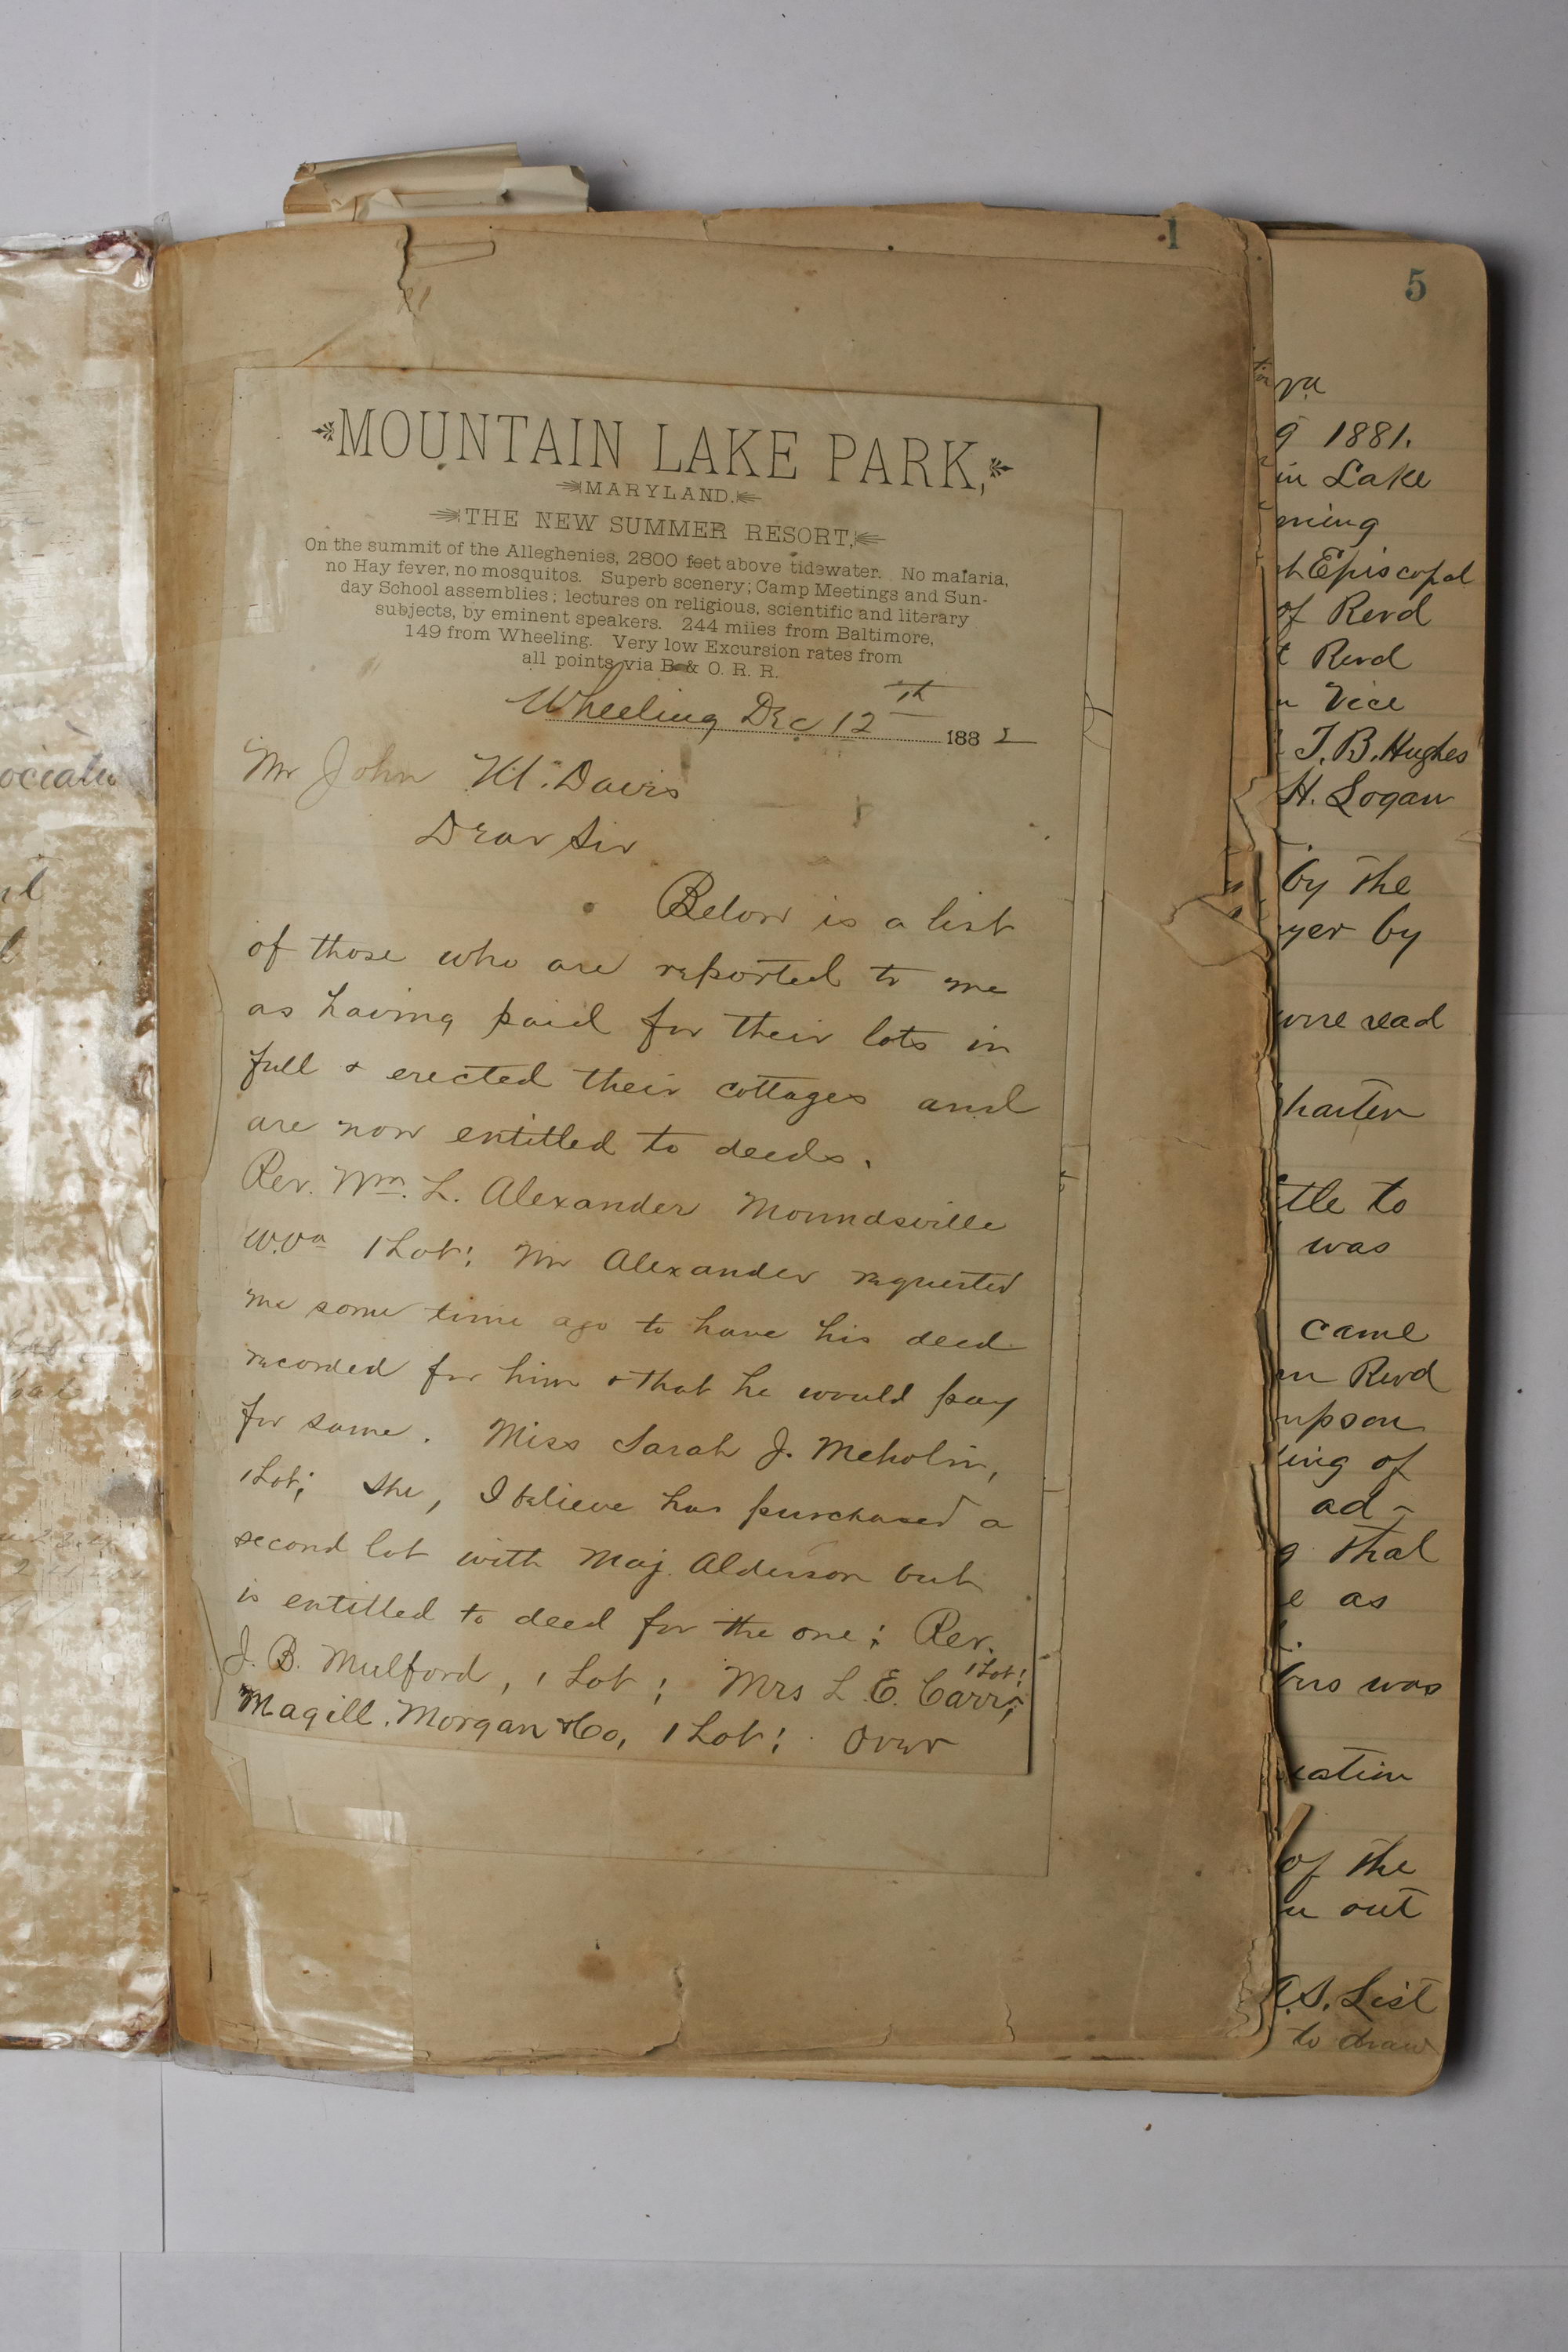 1
MOUNTAIN LAKE PARK,
MARYLAND.
THE NEW SUMMER RESORT,
On the summit of the Alleghenies, 2800 feet above tidewater. No malaria,
no Hay fever, no mosquitos. Superb scenery; Camp Meetings and Sun-
day School assemblies; lectures on religious, scientific and literary
subjects, by eminent speakers. 244 miles from Baltimore,
149 from Wheeling. Very low Excursion rates from
all points via B & O. R. R.
Wheeling Dec 12th 1882
Mr John M. Davis
Dear Sir
Below is a list
of those who are reported to me
as having paid for their lots in
full & erected their cottages and
are now entitled to deeds.
Rev. Wm. L. Alexander Moundsville
W.Va 1 Lot; Mr Alexander requested
me some time ago to have his deed
recorded for him & that he would pay
for same. Miss Sarah J. Meholin,
1 Lot; She, I believe has purchased a
second lot with Maj. Alderson but
is entitled to deed for the one; Rev.
J. B. Mulford, 1 Lot; Mrs L. E. Carr, 1 Lot;
Magill, Morgan & Co, 1 Lot; Over
5
1881.
in Lake
Episcopal
of Revd
Revd
Vice
T. B. Hughes
H. Logan
by the
by
read
to
was
came
Revd
of
ad-
that
as
was
of the
out
S. List
to draw